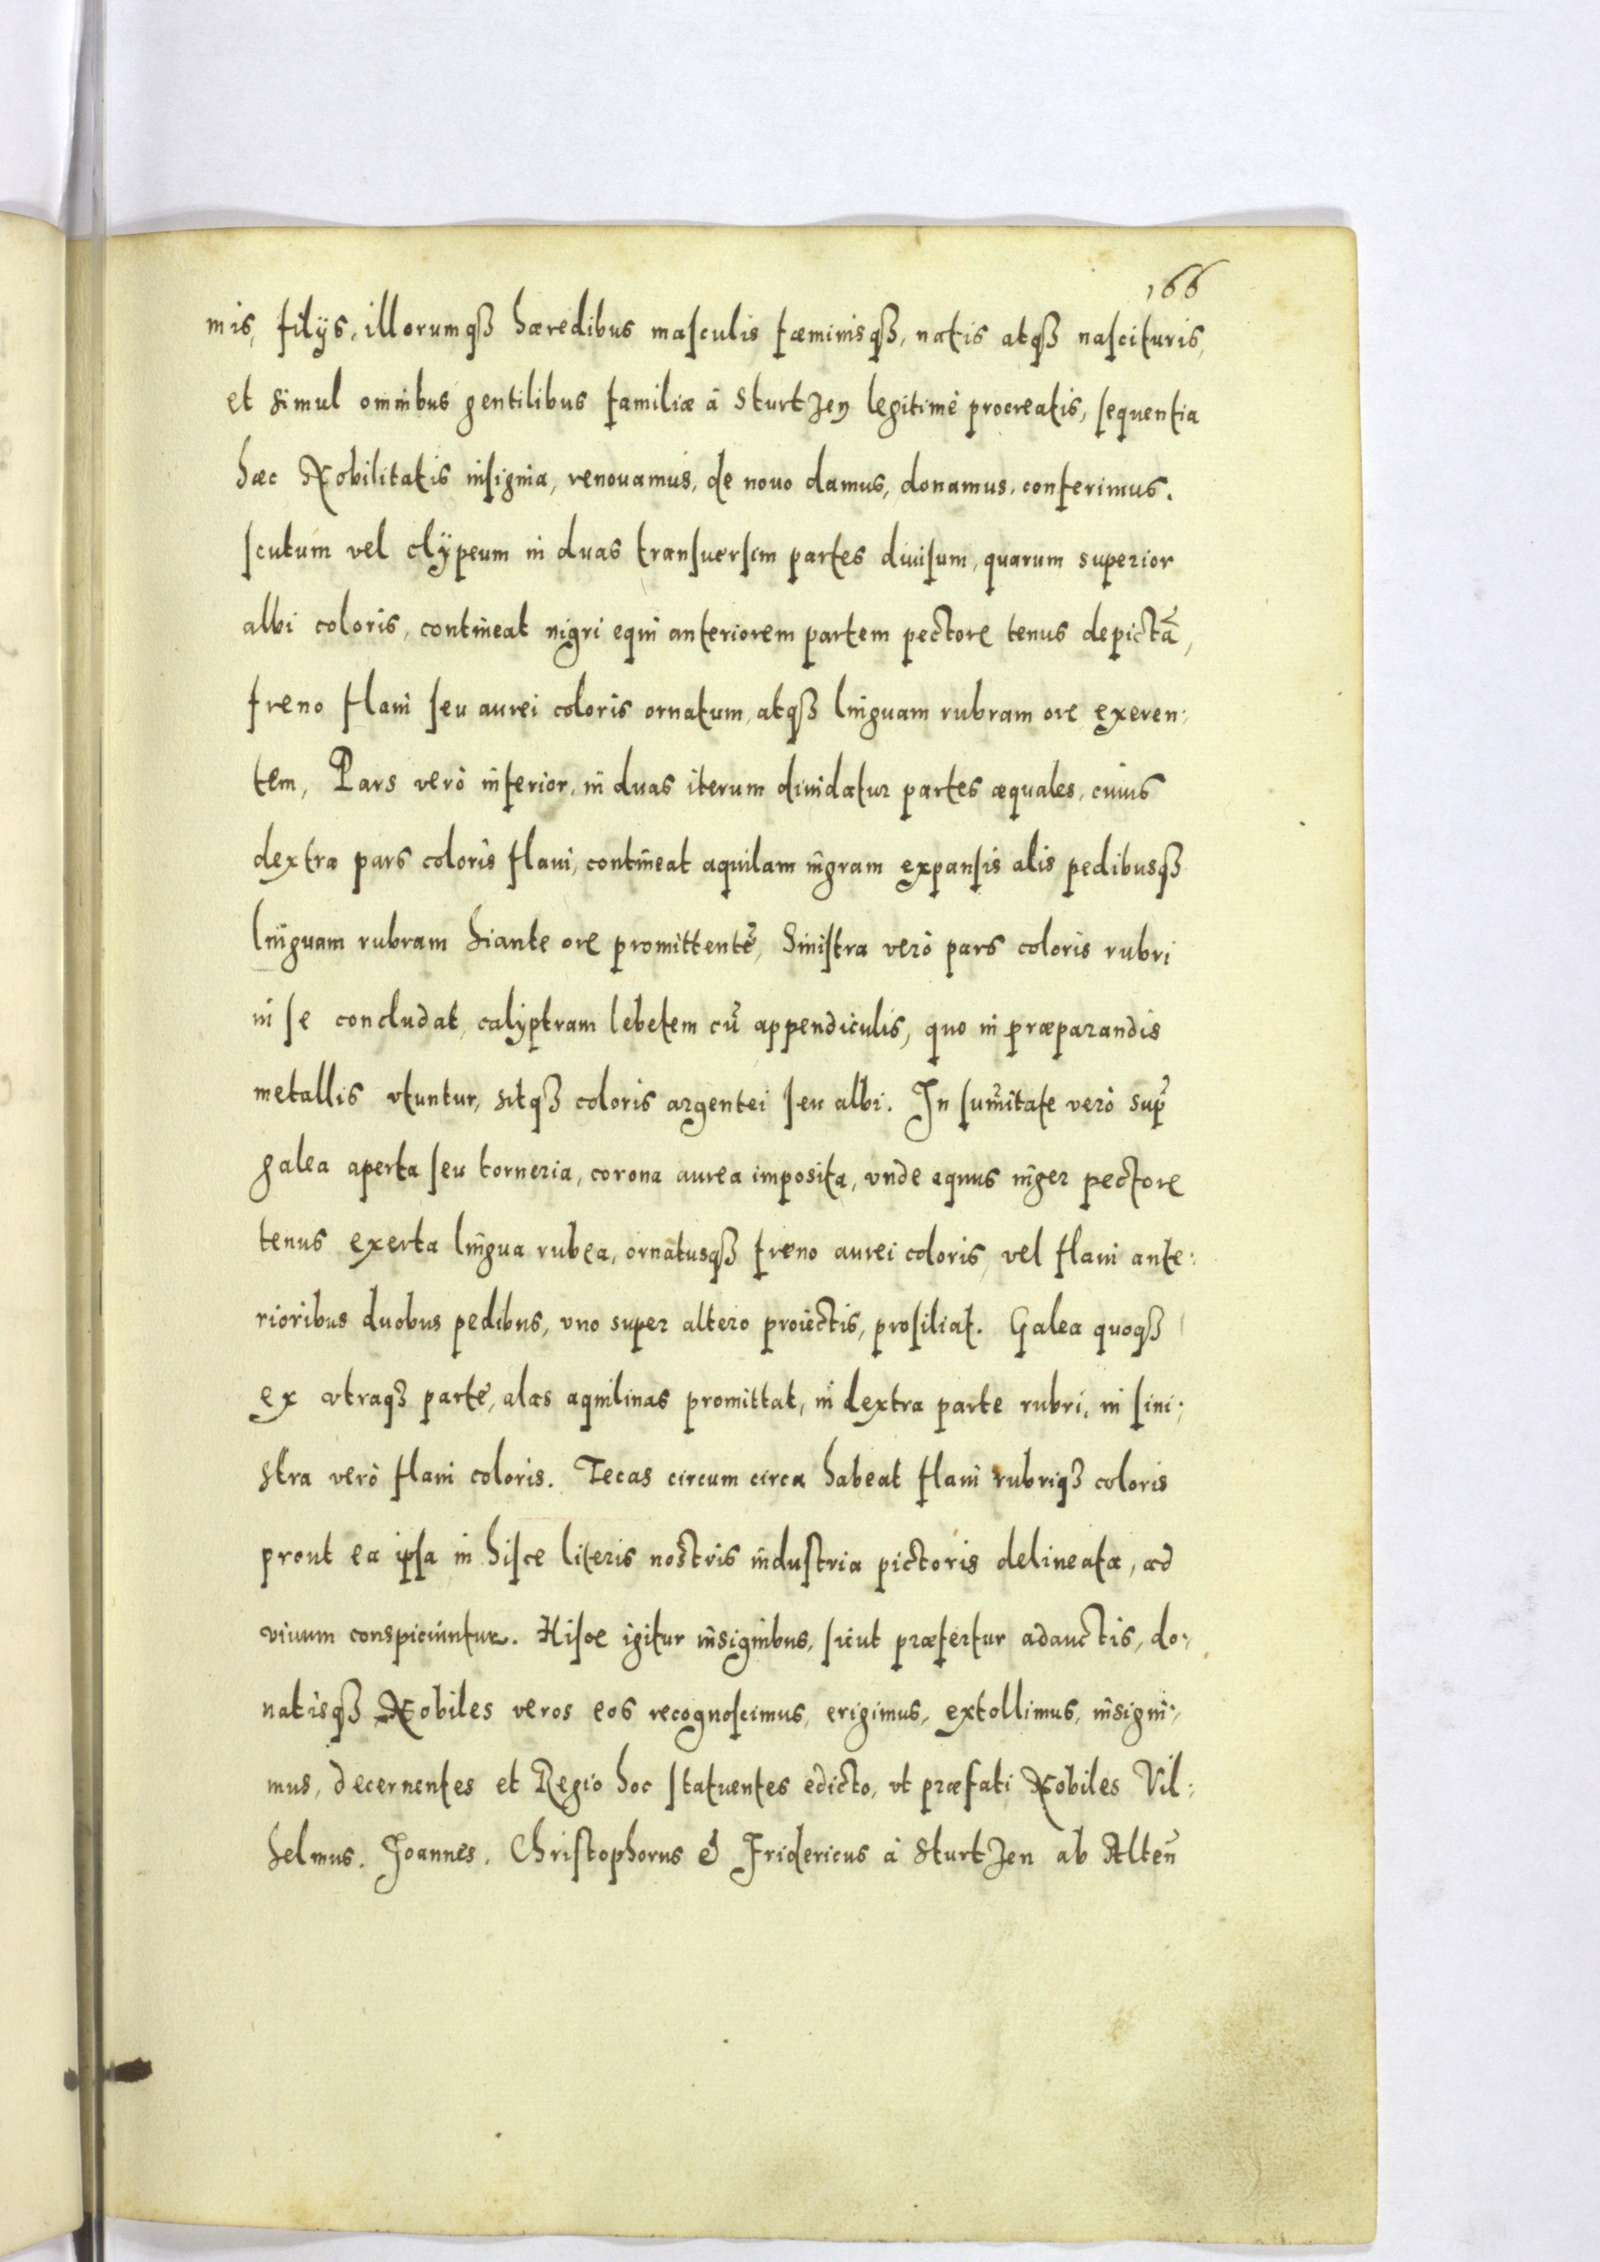 166
mis, filijs, illorumqꝫ hæredibus masculis fæminisqꝫ, natis atqꝫ nascituris,
et simul omnibus gentilibus familiæ à Sturtzen legitimè procreatis, sequentia
hæc Nobilitatis insignia, renouamus, de nouo damus, donamus, conferimus.
scutum vel clÿpeum in duas transuersim partes diuisum, quarum superior
albi coloris, contineat nigri equi anteriorem partem pectore tenus depictã,
freno flaui seu aurei coloris ornatum, atqꝫ linguam rubram ore exeren:
tem, Pars verò inferior, in duas iterum diuidatur partes æquales, cuius
dextra pars coloris flaui, contineat aquilam nigram expansis alis pedibusqꝫ
linguam rubram hiante ore promittentẽ, Sinistra verò pars coloris rubri
in se concludat, calÿptram lebetem cũ appendiculis, quo in præparandis
metallis vtuntur, sitqꝫ coloris argentei seu albi. In sum̃itate verò sup̃
galea aperta seu torneria, corona aurea imposita, vnde equus niger pectore
tenus exerta lingua rubea, ornatusqꝫ freno aurei coloris, vel flaui ante:
rioribus duobus pedibus, vno super altero proiectis, prosiliat. Galea quoqꝫ
ex vtraqꝫ parte, alas aquilinas promittat, in dextra parte rubri, in sini:
stra verò flaui coloris. Tecas circum circa habeat flaui rubriqꝫ coloris
prout ea ipsa in hisce literis nostris industria pictoris delineata, ad
viuum conspiciuntur. Hisce igitur insignibus, sicut præfertur adauctis, do:
natisqꝫ Nobiles veros eos recognoscimus, erigimus, extollimus, insigni:
mus, decernentes et Regio hoc statuentes edicto, vt præfati Nobiles Vil:
helmus, Joannes, Christophorus & Fridericus à Sturtzen ab Alteñ